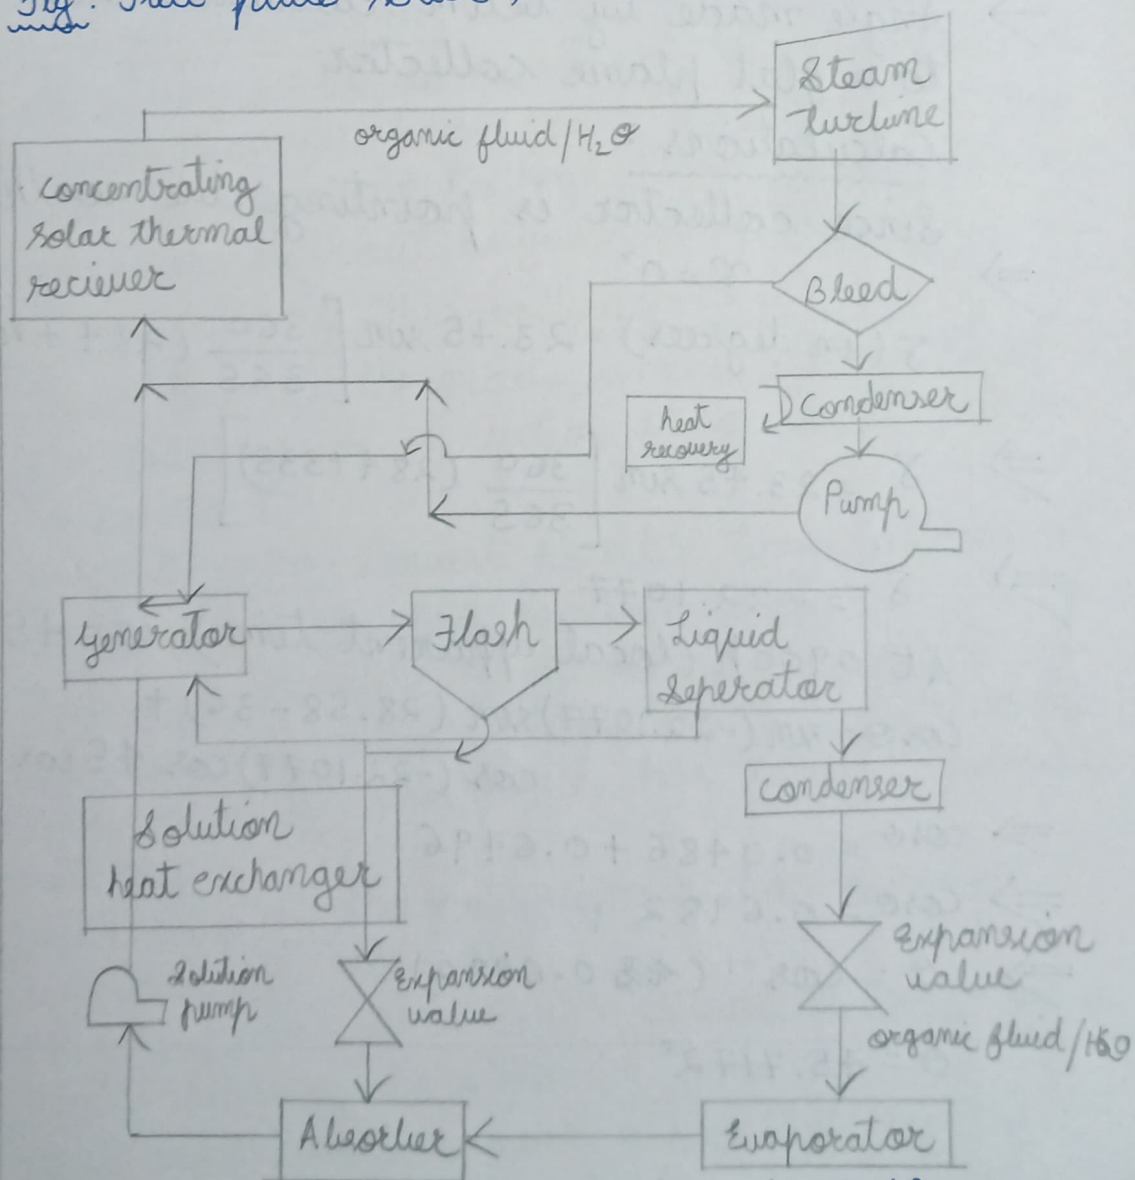 Fig:
Steam
turbine
organic fluid/H₂O
concentrating
solar thermal
reciever
Bleed
Condenser
heat
recovery
Pump
Generator
Flash
Liquid
Seperator
condenser
Solution
heat exchanger
Expansion
value
Solution
pump
Expansion
value
organic fluid/H₂O
Absorber
Evaporator